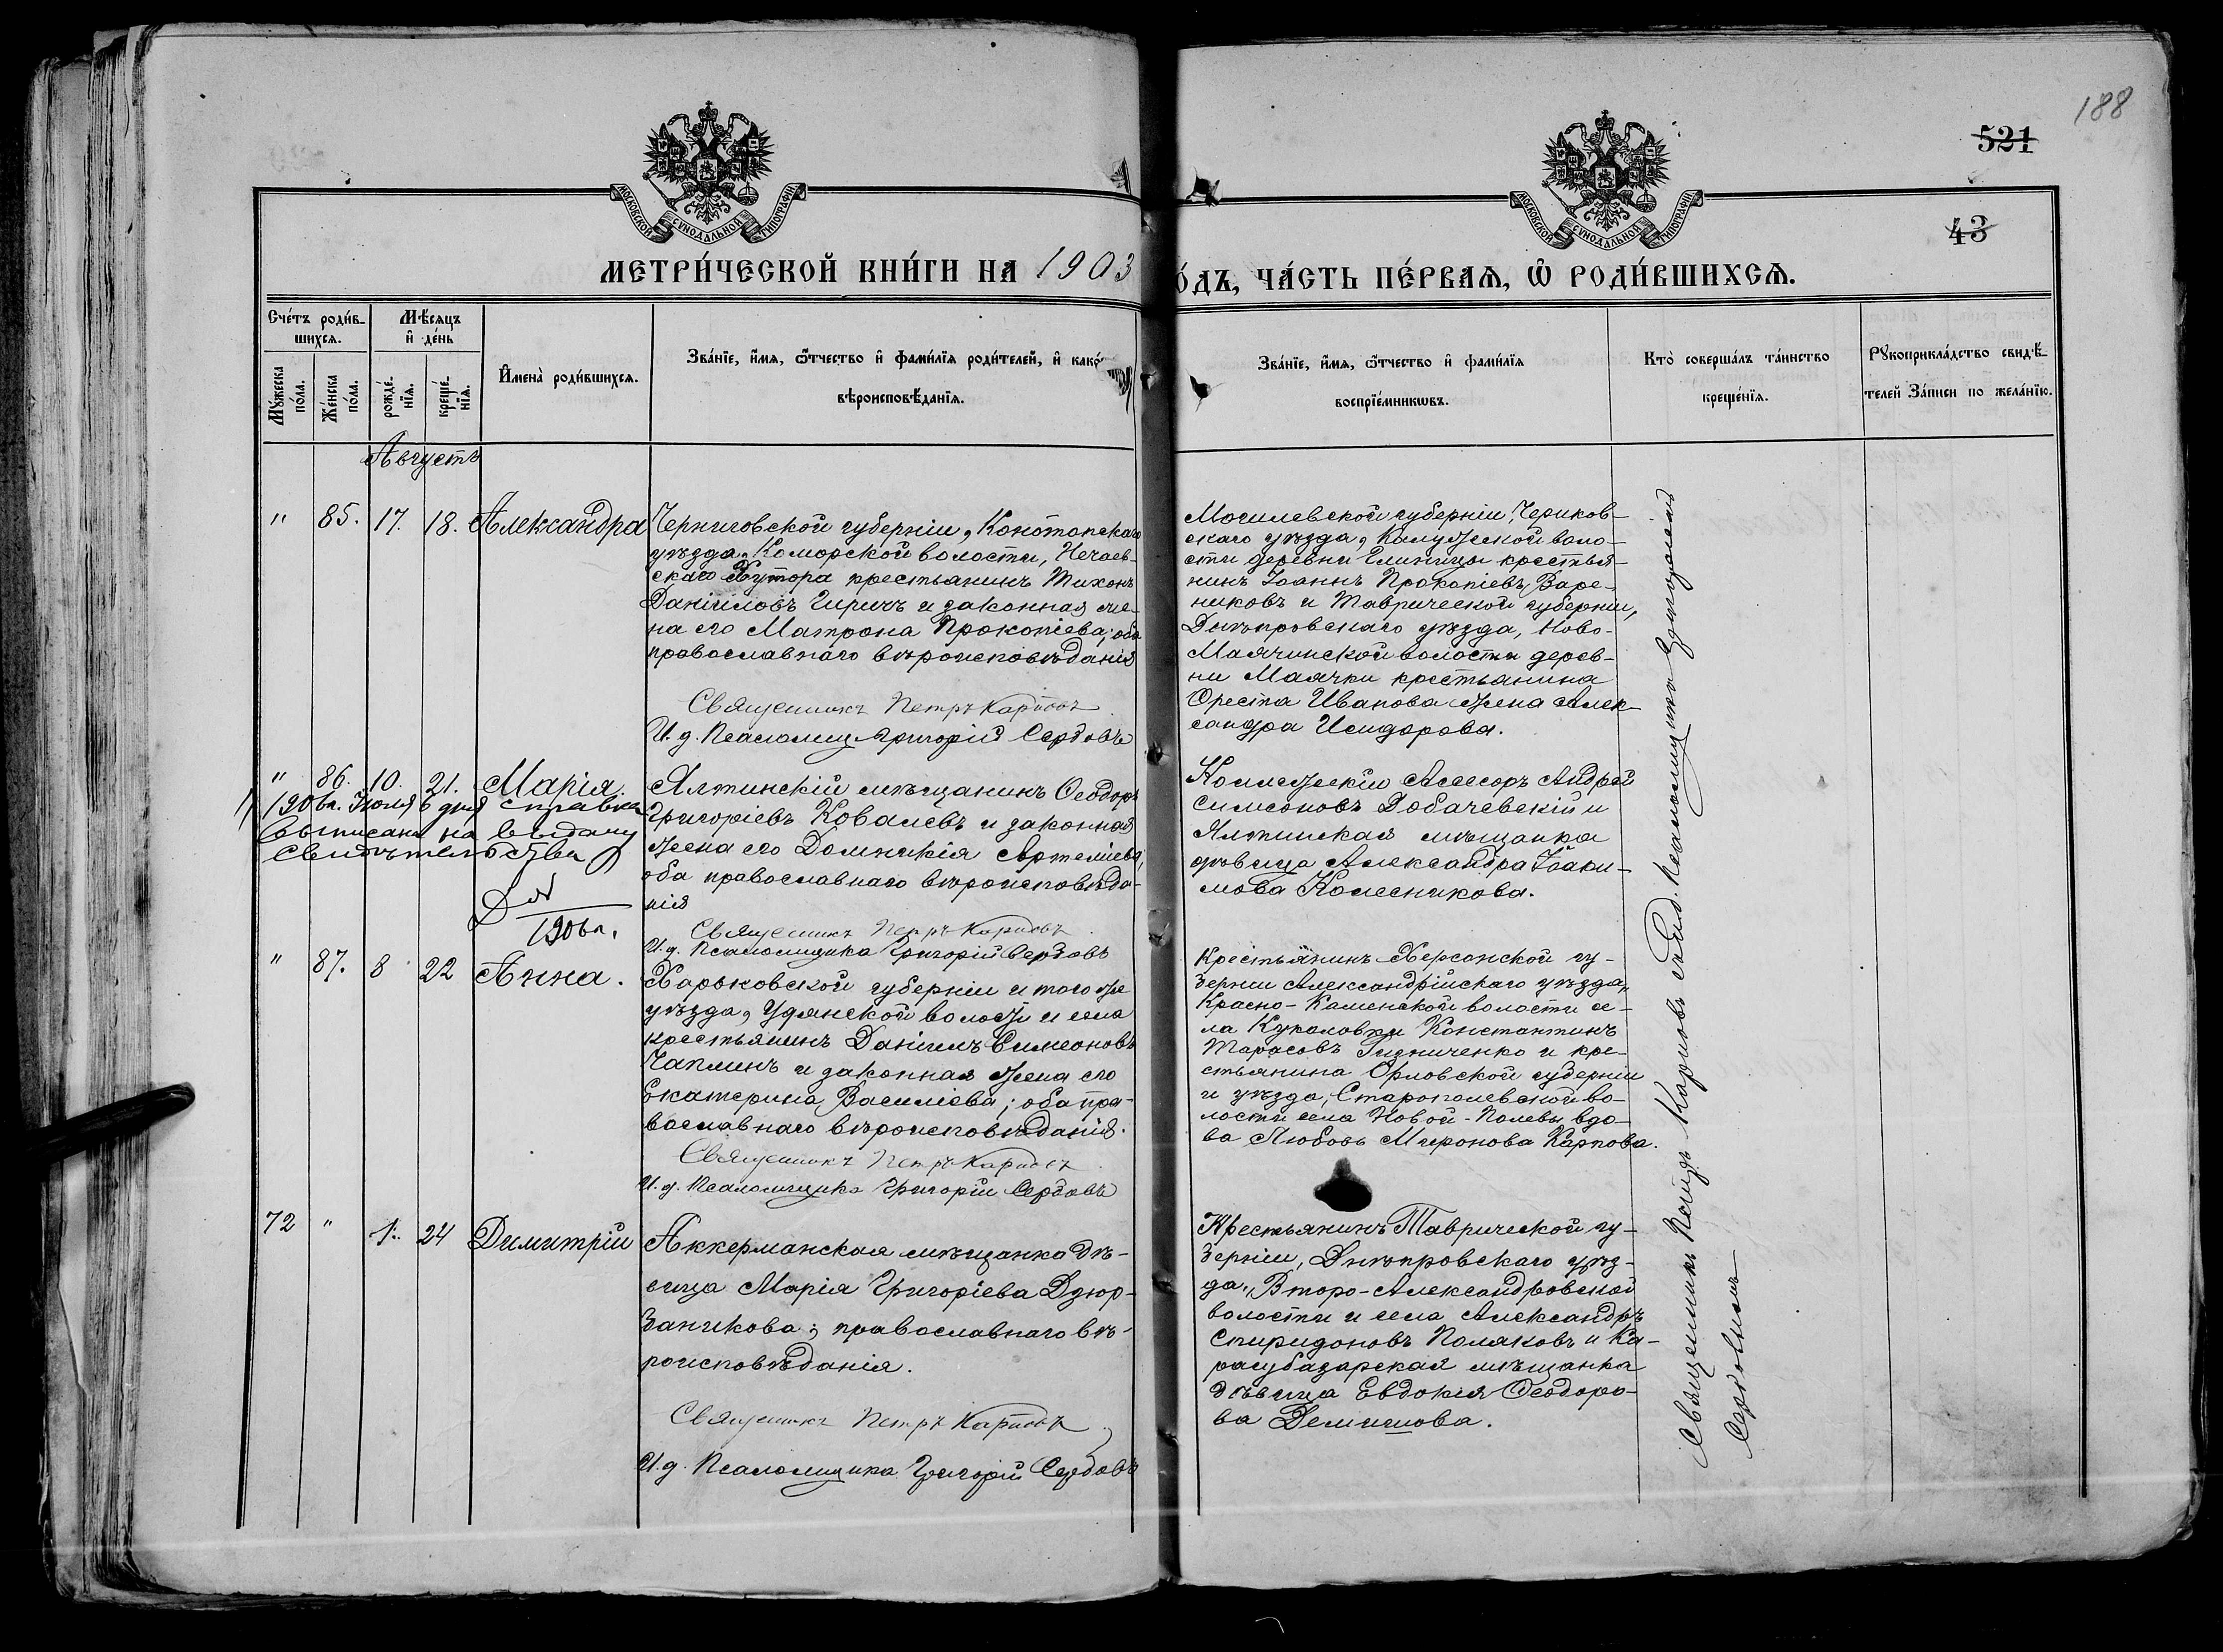 188
521
43
МОСКОВСКОЙ СѴНОДАЛЬНОЙ ТИПОГРАФІИ
МОСКОВСКОЙ СѴНОДАЛЬНОЙ ТИПОГРАФІИ
МЕТРИ́ЧЕСКОЙ КНИ́ГИ НА 1903
О́ДЪ, ЧА́СТЬ ПЕ́РВАѦ, Ѡ҆ РОДИ́ВШИХСѦ.
Сче́тъ роди́в-
шихся.
Мѣ́сяцъ
и҆ де́нь
Мꙋ́жеска
по́ла.
Же́нска
по́ла.
рожде́-
нїя.
креще́-
нїя.
И҆мена̀ роди́вшихся.
Зва́нїе, и҆́мя, ѻ҆́тчество и҆ фами́лїя роди́телей, и҆ како́
вѣроисповѣ́данїя.
Зва́нїе, и҆́мя, ѻ҆́тчество и҆ фами́лїя
воспрїе́мникѡвъ.
Кто̀ соверша́лъ та́инство
креще́нїя.
Рꙋкоприкла́дство свидѣ́-
телей за́писи по жела́нїю.
Августъ
" 85. 17. 18. Александра
Черниговской губерніи, Конотопскаго
уѣзда, Коморской волости, Нечаев-
скаго Хутора крестьянинъ Тихонъ
Даніиловъ Гиричъ и законная же-
на его Матрона Прокопіева; оба
православнаго вѣроисповѣданія
Священникъ Петръ Карповъ
И. д. Псаломщ. Григорій Сербовъ
Могилевской губерніи, Чериков-
скаго уѣзда, Калужской воло-
сти деревни Глиницы крестья-
нинъ Іоаннъ Прокопіевъ Варе-
никовъ и Таврической губерніи,
Днѣпровскаго уѣзда, Ново-
Маячинской волости дерев-
ни Маячки крестьянина
Ореста Иванова жена Алек-
сандра Исидорова.
" 86. 10. 21. Марія.
1906 г. Іюля 6 дня справка
выписана на выдачу
свидѣтельства
Д №
1906 г.
Ялтинскій мѣщанинъ Ѳеодоръ
Григоріевъ Ковалевъ и законная
жена его Домникія Артеміева,
оба православнаго вѣроисповѣда-
нія
Священникъ Петръ Карповъ
И. д. Псаломщика Григорій Сербовъ
Коллежскій Асессоръ Андрей
Симеоновъ Добачевскій и
Ялтинская мѣщанка
дѣвица Александра Іоаки-
мова Колесникова.
" 87. 8 22 Анна.
Харьковской губерніи и того же
уѣзда, Удянской волости и села
крестьянинъ Даніилъ Симеоновъ
Чаплинъ и законная жена его
Екатерина Василіева; оба пра-
вославнаго вѣроисповѣданія.
Священникъ Петръ Карповъ
И. д. Псаломщика Григорій Сербовъ
Крестьянинъ Херсонской гу-
берніи Александрійскаго уѣзда,
Красно-Каменской волости се-
ла Куколовки Константинъ
Тарасовъ Гидниченко и кре-
стьянина Орловской губерніи
и уѣзда, Старопольевской во-
лости села Новой-Полевы вдо-
ва Любовь Миронова Карпова.
72 " 1. 24 Димитрій
Аккерманская мѣщанка дѣ-
вица Марія Григоріева Дзюр-
баникова; православнаго вѣ-
роисповѣданія.
Священникъ Петръ Карповъ
И. д. Псаломщика Григорій Сербовъ
Крестьянинъ Таврической гу-
берніи, Днѣпровскаго уѣз-
да, Второ-Александровской
волости и села Александръ
Спиридоновъ Поляковъ и Ка-
расубазарская мѣщанка
дѣвица Евдокія Ѳеодоро-
ва Демишова.
Священникъ Петръ Карповъ съ и.д. Псаломщика Григоріемъ
Сербовымъ